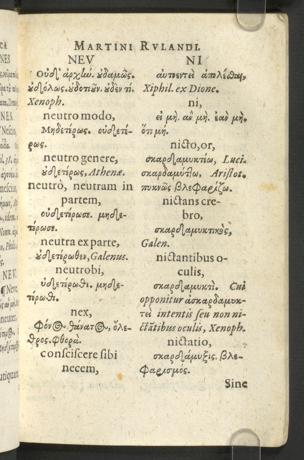 MARTINI RVLANDI.
NEV
Οὐδ' ἀρχὴν. οὐδαμῶς.
Xenoph.
neutro modo,
Μηδετέρως. οὐδετέρως.
neutro genere,
οὐδετέρως, Athenæ.
neutrò, neutram in
partem,
οὐδετέρωσε. μηδετέρωσε.
neutra ex parte,
οὐδετέρωθεν, Galenus.
neutrobi,
οὐδετέρωθι. μηδετέρωθι.
nex,
Φόνος. θάνατος, ὄλεθρος. φθορά.
consciscere sibi
necem,
NI
Xiphil. ex Dione.
ni,
εἰ μὴ. ἂν μὴ. ἐὰν μὴ.
ὅτι μὴ.
nicto, or,
σκαρδαμυκτέω, Luci.
σκαρδαμύττω, Aristot.
πυκνῶς βλεφαρίζω.
nictans crebro,
σκαρδαμυκτικὸς,
Galen.
nictantibus oculis,
σκαρδαμυκτὶ. Cui
opponitur ἀσκαρδαμυκτεὶ
intentis seu non nictātibus
oculis, Xenoph.
nictatio,
σκαρδάμυξις. βλεφαρισμός.
Sine